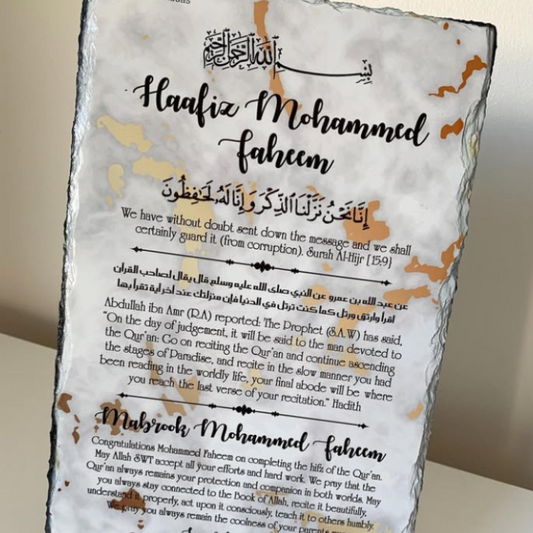 بِسْمِ اللهِ الرَّحْمٰنِ الرَّحِيْمِ
Haafiz Mohammed
Faheem
إِنَّا نَحْنُ نَزَّلْنَا ٱلذِّكْرَ وَإِنَّا لَهُۥ لَحَٰفِظُونَ
We have without doubt sent down the message and we shall
certainly guard it (from corruption). Surah Al-Hijr [15:9]
عن عبد الله بن عمرو عن النبي صلى الله عليه وسلم قال يقال لصاحب القرآن
اقرأ وارتق ورتل كما كنت ترتل في الدنيا فإن منزلتك عند آخر آية تقرأ بها
Abdullah ibn Amr (R.A) reported: The Prophet (S.A.W) has said,
"On the day of judgement, it will be said to the man devoted to
the Qur'an: Go on reciting the Qur'an and continue ascending
the stages of Paradise, and recite in the slow manner you had
been reading in the worldly life, your final abode will be where
you reach the last verse of your recitation." Hadith
Mabrook Mohammed Faheem
Congratulations Mohammed Faheem on completing the hifz of the Qur'an.
May Allah SWT accept all your efforts and hard work. We pray that the
Qur'an always remains your protection and companion in both worlds. May
you always stay connected to the Book of Allah, recite it beautifully,
understand it properly, act upon it consciously, teach it to others humbly.
We pray you always remain the coolness of your parents